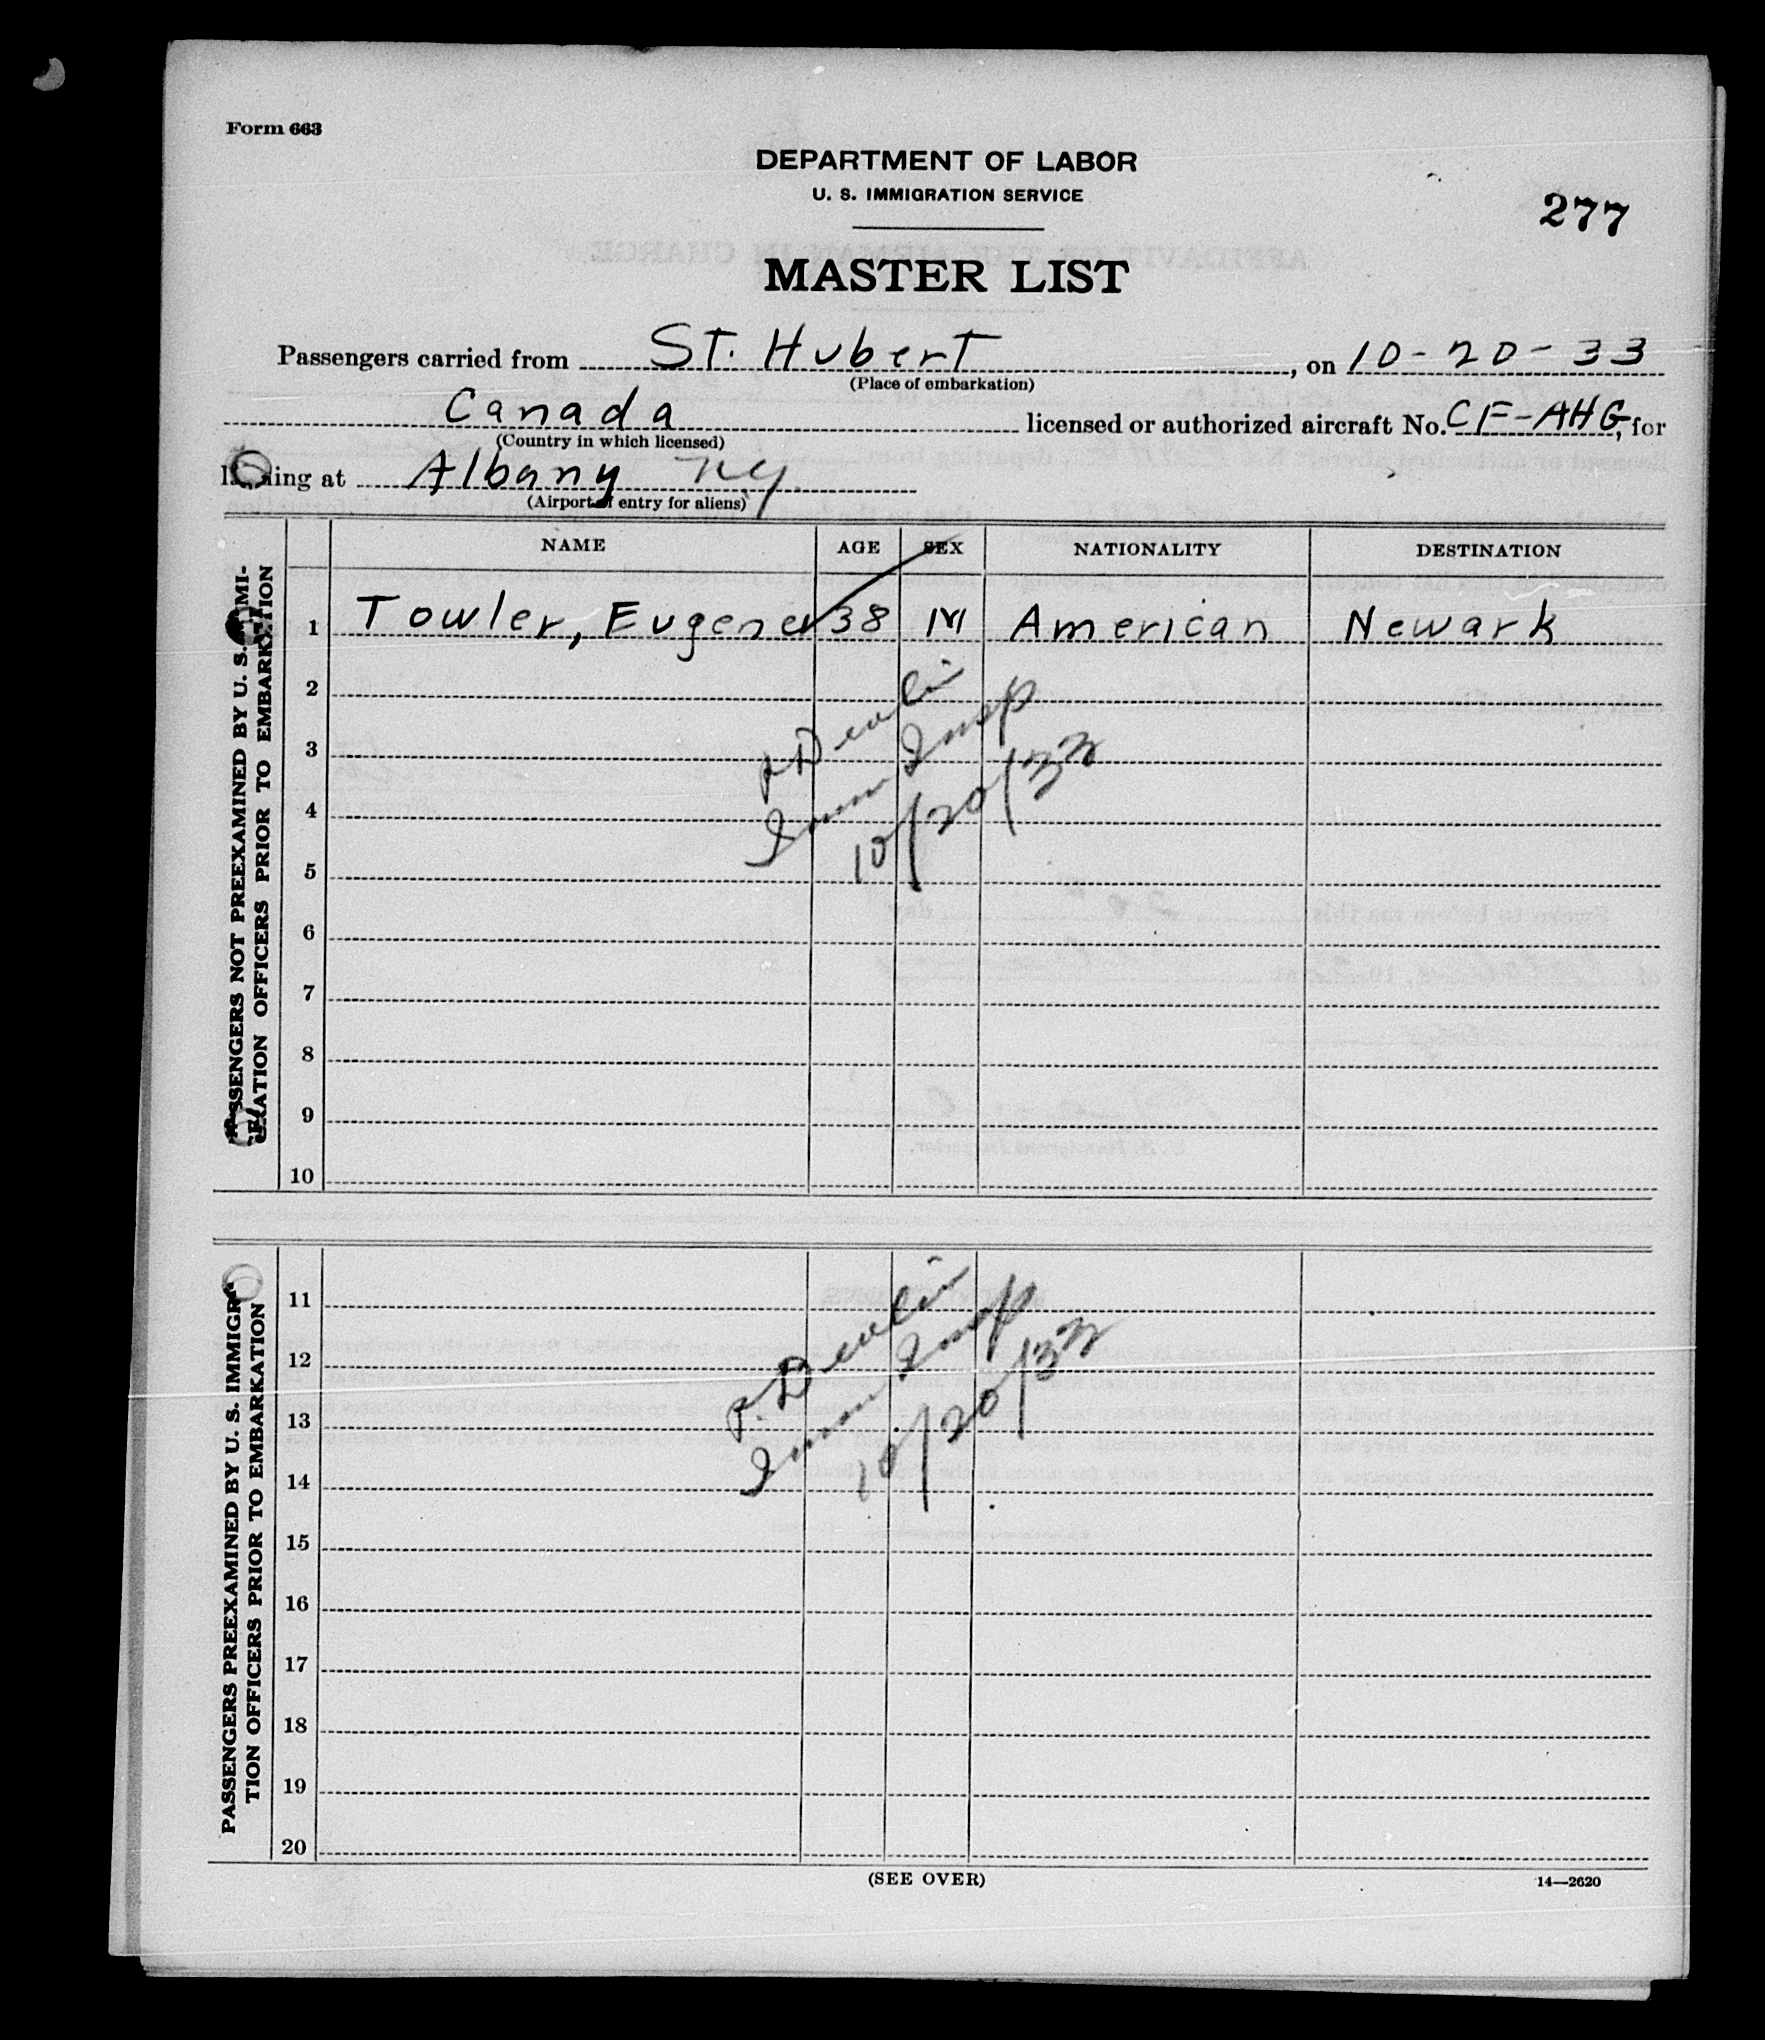 Form 663
DEPARTMENT OF LABOR
U. S. IMMIGRATION SERVICE
277
MASTER LIST
Passengers carried from ST. Hubert, on 10-20-33
(Place of embarkation)
Canada licensed or authorized aircraft No. CF-AHG, for
(Country in which licensed)
landing at Albany NY.
(Airport of entry for aliens)
NAME AGE SEX NATIONALITY DESTINATION
PASSENGERS NOT PREEXAMINED BY U. S. IMMI-
GRATION OFFICERS PRIOR TO EMBARKATION
1 Towler, Eugene 38 M American Newark
2
3
4
5
6
7
8
9
10
P. Devlin
Imm Insp
10/20/33
PASSENGERS PREEXAMINED BY U. S. IMMIGRA-
TION OFFICERS PRIOR TO EMBARKATION
11
12
13
14
15
16
17
18
19
20
P. Devlin
Imm Insp
10/20/33
(SEE OVER)
14—2620